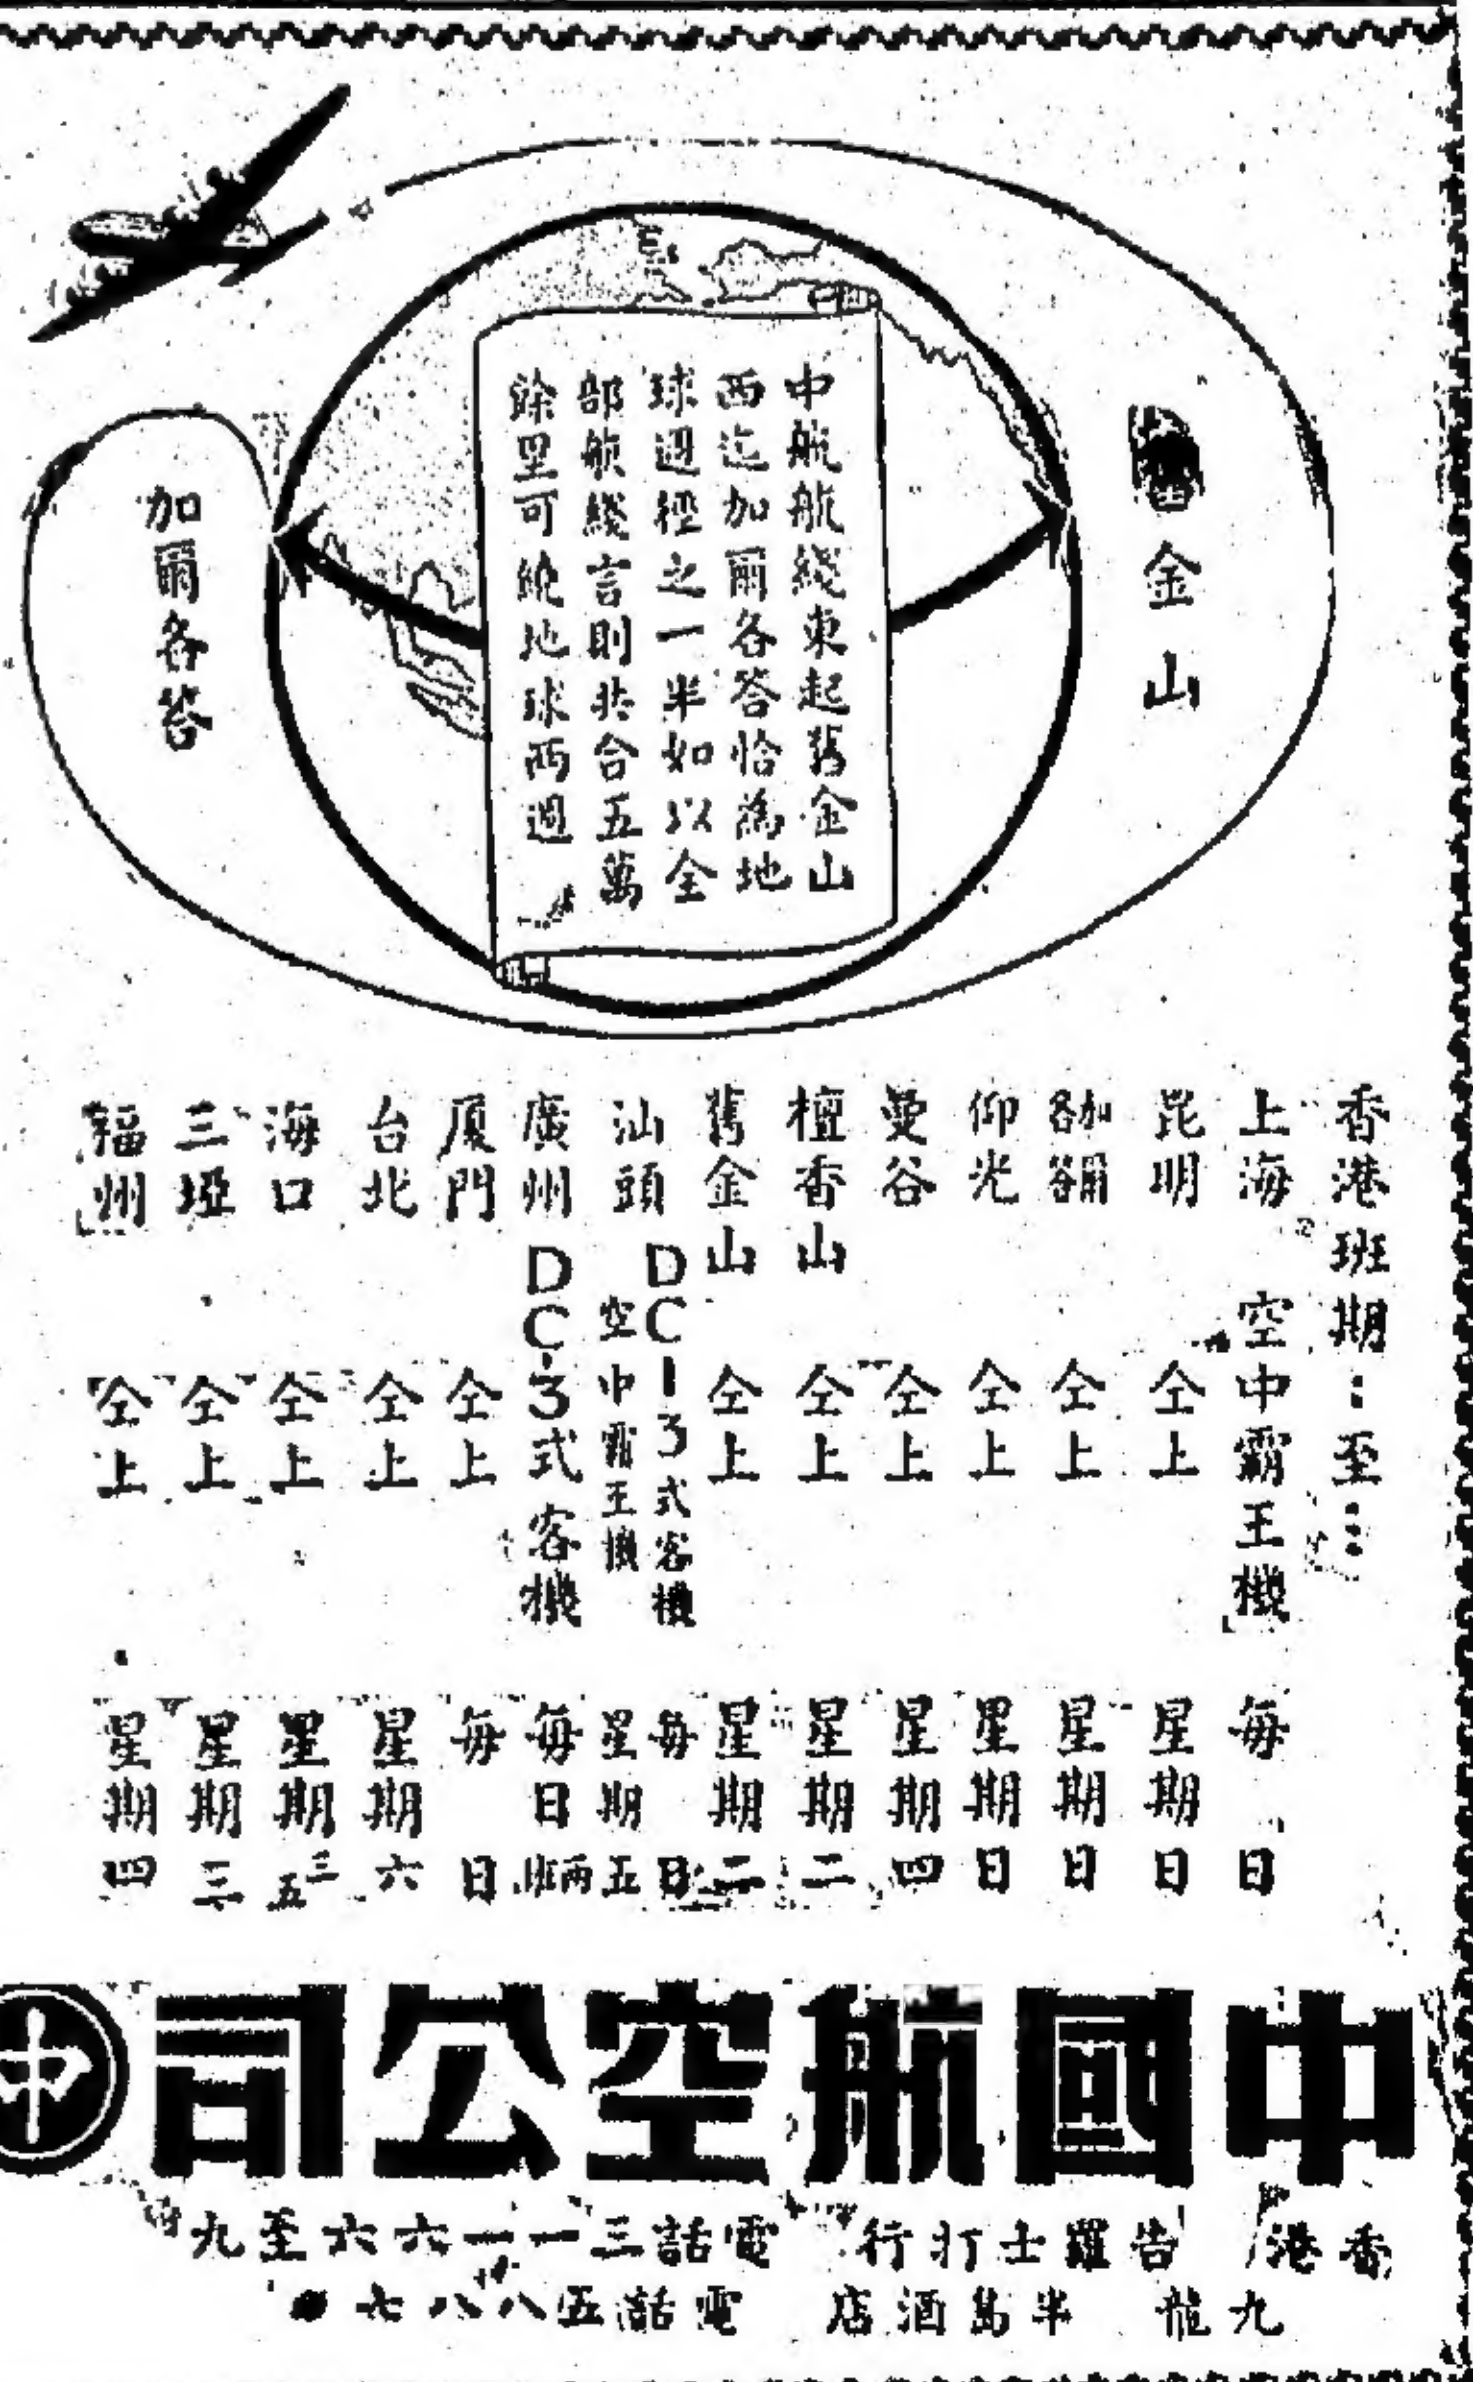 舊金山
中航航綫東起舊金山
西迄加爾各答恰為地
球週徑之一半如以全
部航綫言則共合五萬
餘里可繞地球兩週
加爾各答
香港班期：至：
上海 空中霸王機 每日
昆明 仝上 星期日
加爾各答 仝上 星期日
仰光 仝上 星期日
曼谷 仝上 星期四
檀香山 仝上 星期二
舊金山 仝上 星期二
汕頭 DC-3式客機 每日
空中霸王機 星期五
廣州 DC-3式客機 每日兩班
厦門 仝上 每日
台北 仝上 星期六
海口 仝上 星期三五
三埡 仝上 星期三
福州 仝上 星期四
中國航空公司
中
香港 告羅士打行 電話三一一六六六至九
九龍 半島酒店 電話五八八七